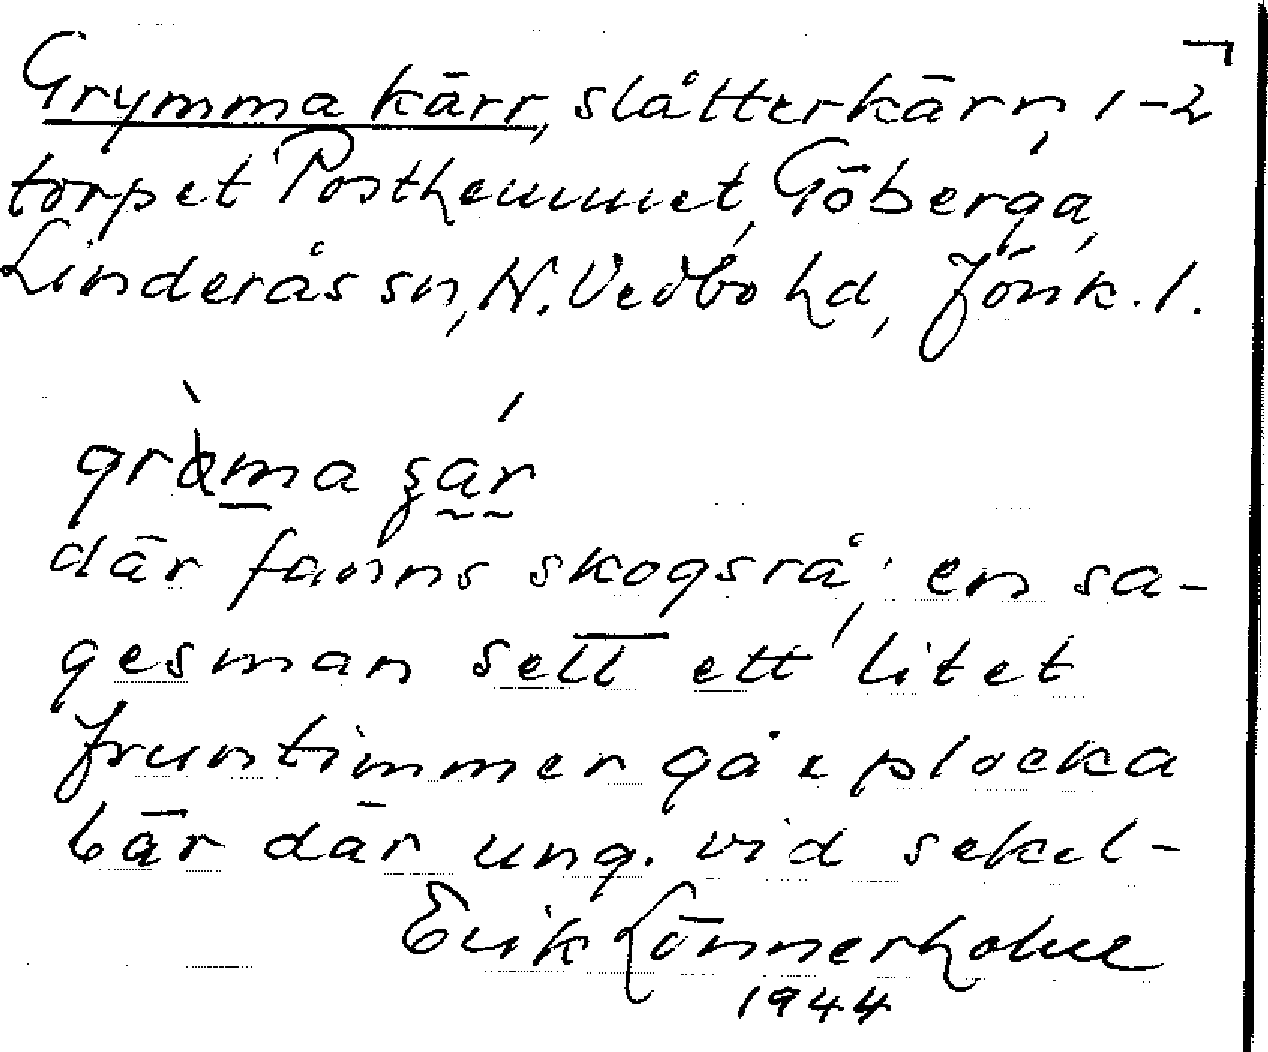 Grymma kärr, slåtterkärr, 1-2
torpet Posthemmet, Göberga,
Linderås sn, N. Vedbo hd, Jönk. l.
där fanns skogsrå; en sa-
gesman sett ett litet
fruntimmer gå o plocka
bär där ung. vid sekel-
Erik Lönnerholm
1944